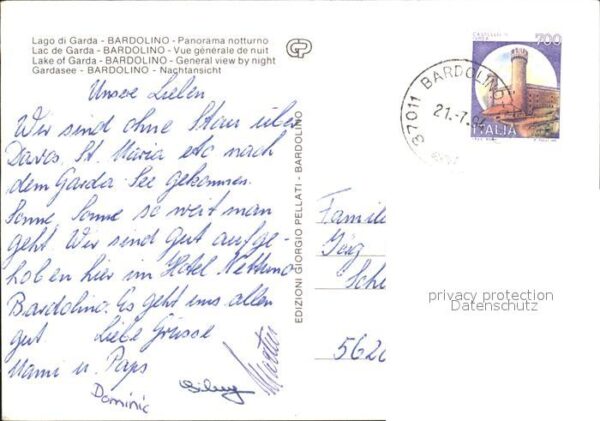 Lago di Garda - BARDOLINO - Panorama notturno
Lac de Garda - BARDOLINO - Vue générale de nuit
Lake of Garda - BARDOLINO - General view by night
Gardasee - BARDOLINO - Nachtansicht
Unsere Lieben
Wir sind ohne Stau über
Davos, St. Maria etc nach
dem Garda-See gekommen.
Sonne, Sonne so weit man
geht. Wir sind gut aufge-
hoben hier im Hotel Nettuno
Bardolino. Es geht uns allen
gut Liebe Grüsse
Mami u. Paps
Dominic
Martin
EDIZIONI GIORGIO PELLATI - BARDOLINO
700
ITALIA
37011 BARDOLINO
21.-7.
Famili
Jörg
Sch
562
privacy protection
Datenschutz